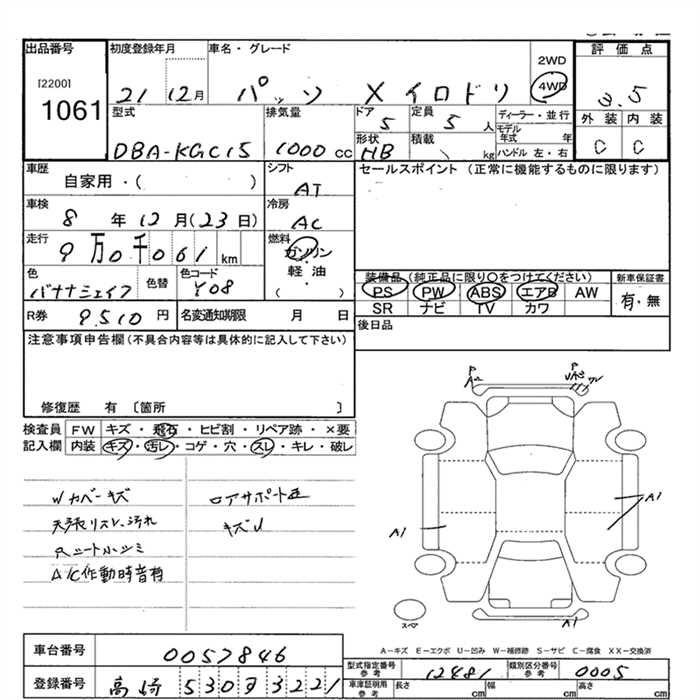 出品番号 初度登録年月 車名・グレード 評価点
[2200]
1061
21 12月 パッソ X イロドリ 2WD 4WD 3.5
型式 排気量 ドア 定員 ディーラー・並行 外装 内装
5 5 人 モデル年式 年
DBA-KGC15 1000 cc 形状 HB 積載 kg ハンドル 左・右 C C
車歴 自家用・( ) シフト AT セールスポイント(正常に機能するものに限ります)
車検 8 年 12 月(23 日) 冷房 AC
走行 9万0千061 km 燃料 ガソリン・軽油・( )
色 バナナシェイク 色替 色コード Y08
装備品(純正品に限り○をつけてください) 新車保証書
PS PW ABS エアB AW 有・無
SR ナビ TV カワ
R券 9510 円 名変通知期限 月 日 後日品
注意事項申告欄(不具合内容等は具体的に記入して下さい)
修復歴 有 〔箇所 〕
検査員記入欄 FW キズ・飛石・ヒビ割・リペア跡・×要
内装 キズ・汚レ・コゲ・穴・スレ・キレ・破レ
カバーキズ
天張リスレ、汚れ
シート
A/C作動時音有
コアサポート
キズ
A1
A1
A1
スペア
A-キズ E-エクボ U-凹み W-補修跡 S-サビ C-腐食 XX-交換済
車台番号 0057846
型式指定番号 参考 12481 類別区分番号 参考 0005
登録番号 高崎 530 3221
車庫証明用 参考 長さ cm 幅 cm 高さ cm